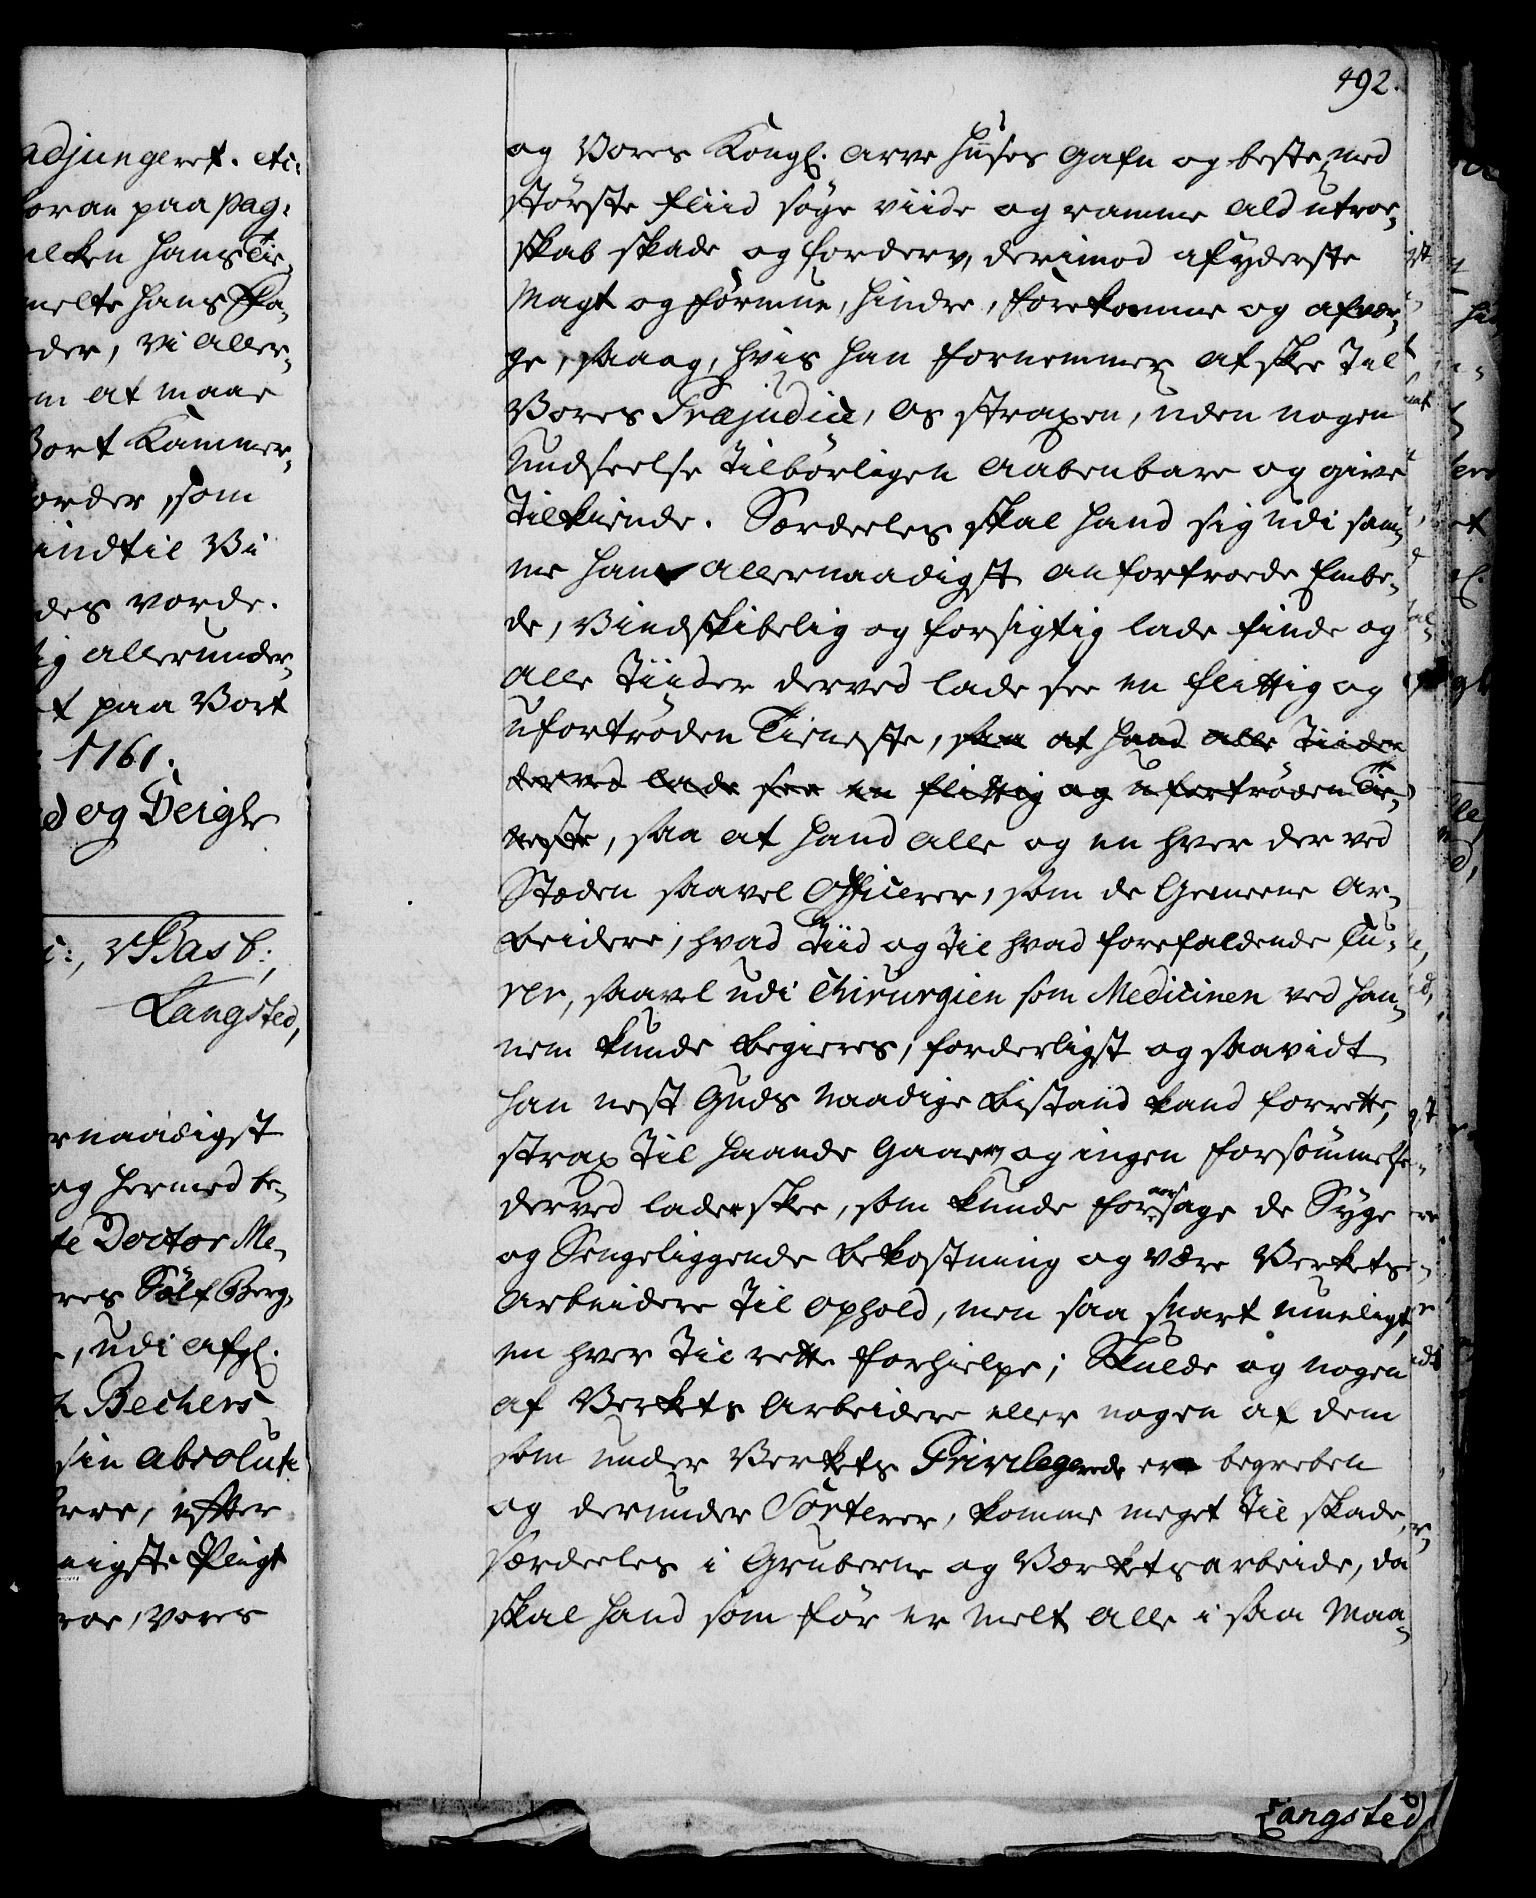 adjungeret. etc:
foran paa pag:
hans Tie-
melte hans Fla-
der, Vi Aller-
m at maae
Vort Kammer-
order, som
indtil Vi
des vorde.
ig allerunder-
t paa Vort
1761.
d og Deigh
c:, v Basb:,
Langsted,
rnaadigst
og hermed be-
te Doctor Me-
res Sölf Berg-
, udi afgl.
h Bechers
sin absolute
rre, efter
nigste Pligt
roe, Vores
492.
og Vores Kongl. arve Huses Gafn og beste, med
største fliid söge viide og ramme ald utroe-
skab skade og forderv, derimod af yderste
Magt og formue, hindre, forekomme og afvær-
ge, saa og, hvis han fornemmer at skee til
Vores Præjudice, os straxen, uden nogen
Undseelse tilbörligen aabenbare og give
tilkiende. Særdeeles skal hand sig udi sam-
me ham allernaadigst anfortroede Embe-
de, Vindskibelig og forsigtig lade finde og
alle tiider derved lade see en flittig og
ufortröden Tieneste, saa at hand alle tiider
derved lade see en flittig og ufortröden Tie-
neste, saa at hand alle og en hver der ved
Stæden saavel Officerer, som de Gemeene Ar-
beidere, hvad tiid og til hvad forefaldende Cu-
rer, saavel udi Chirurgien som Medicinen ved han-
nem kunde begieres, forderligst og saavidt
han nest Guds naadige bistand kand forrette,
strax til haande gaaer, og ingen forsömmelse
derved lader skee, som kunde foraarsage de Syge
og Sengeliggende bekostning og være Verkets
Arbeidere til ophold, men saa snart mueligt,
en hver til rette forhielpe; Skulde og nogen
af Verkets Arbeidere eller nogen af dem
som under Verkets Privilegerede er begreben
og derunder Sorterer, komme meget til skade,
særdeeles i Gruberne og Værketsarbeide, da
skal hand som för er melt alle i saa maa-
Langsted